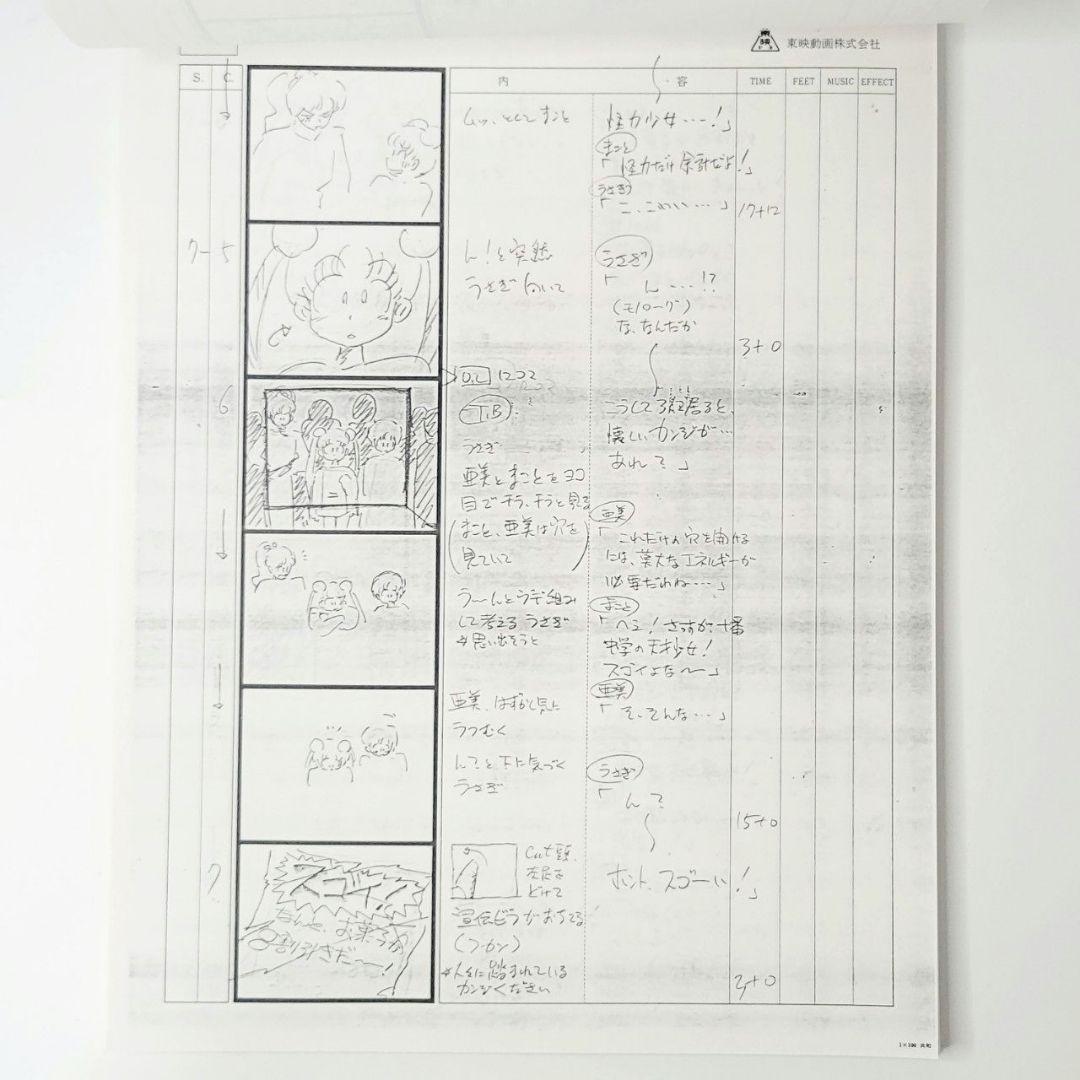 東映動画株式会社
S. C.
内 容
TIME FEET MUSIC EFFECT
ムッ、としてまこと
怪力少女…!」
まこと
「怪力だけ余計だよ!」
うさぎ
「こ、こわい…」
17+12
7-5
ん!と突然
うさぎ向いて
うさぎ
「ん…!?
(モノローグ)
な、なんだか
3+0
6
O.L 12コマ
T.B
うさぎ
亜美とまことをヨコ
目でチラ、チラと見る
(まこと、亜美は穴を
見ていて)
こうして
居ると、
懐しいカンジが…
あれ?」
亜美
「これだけの穴を開ける
には、莫大なエネルギーが
必要だわね…」
う〜んとウデ組み
して考えるうさぎ
思い出そうと
まこと
「ヘェ!さすが、十番
中学の天才少女!
スゴイよな〜」
亜美、はずかし気に
うつむく
亜美
「そ、そんな…」
ん?と下に気づく
うさぎ
うさぎ
「ん?
15+0
7
スゴイ
なんと、お菓子が
割引きだ〜!
Cut頭、
左足を
どけて
宣伝ビラがおちてる
(フカン)
人々に踏まれている
カンジください
ホント、スゴーい!」
3+0